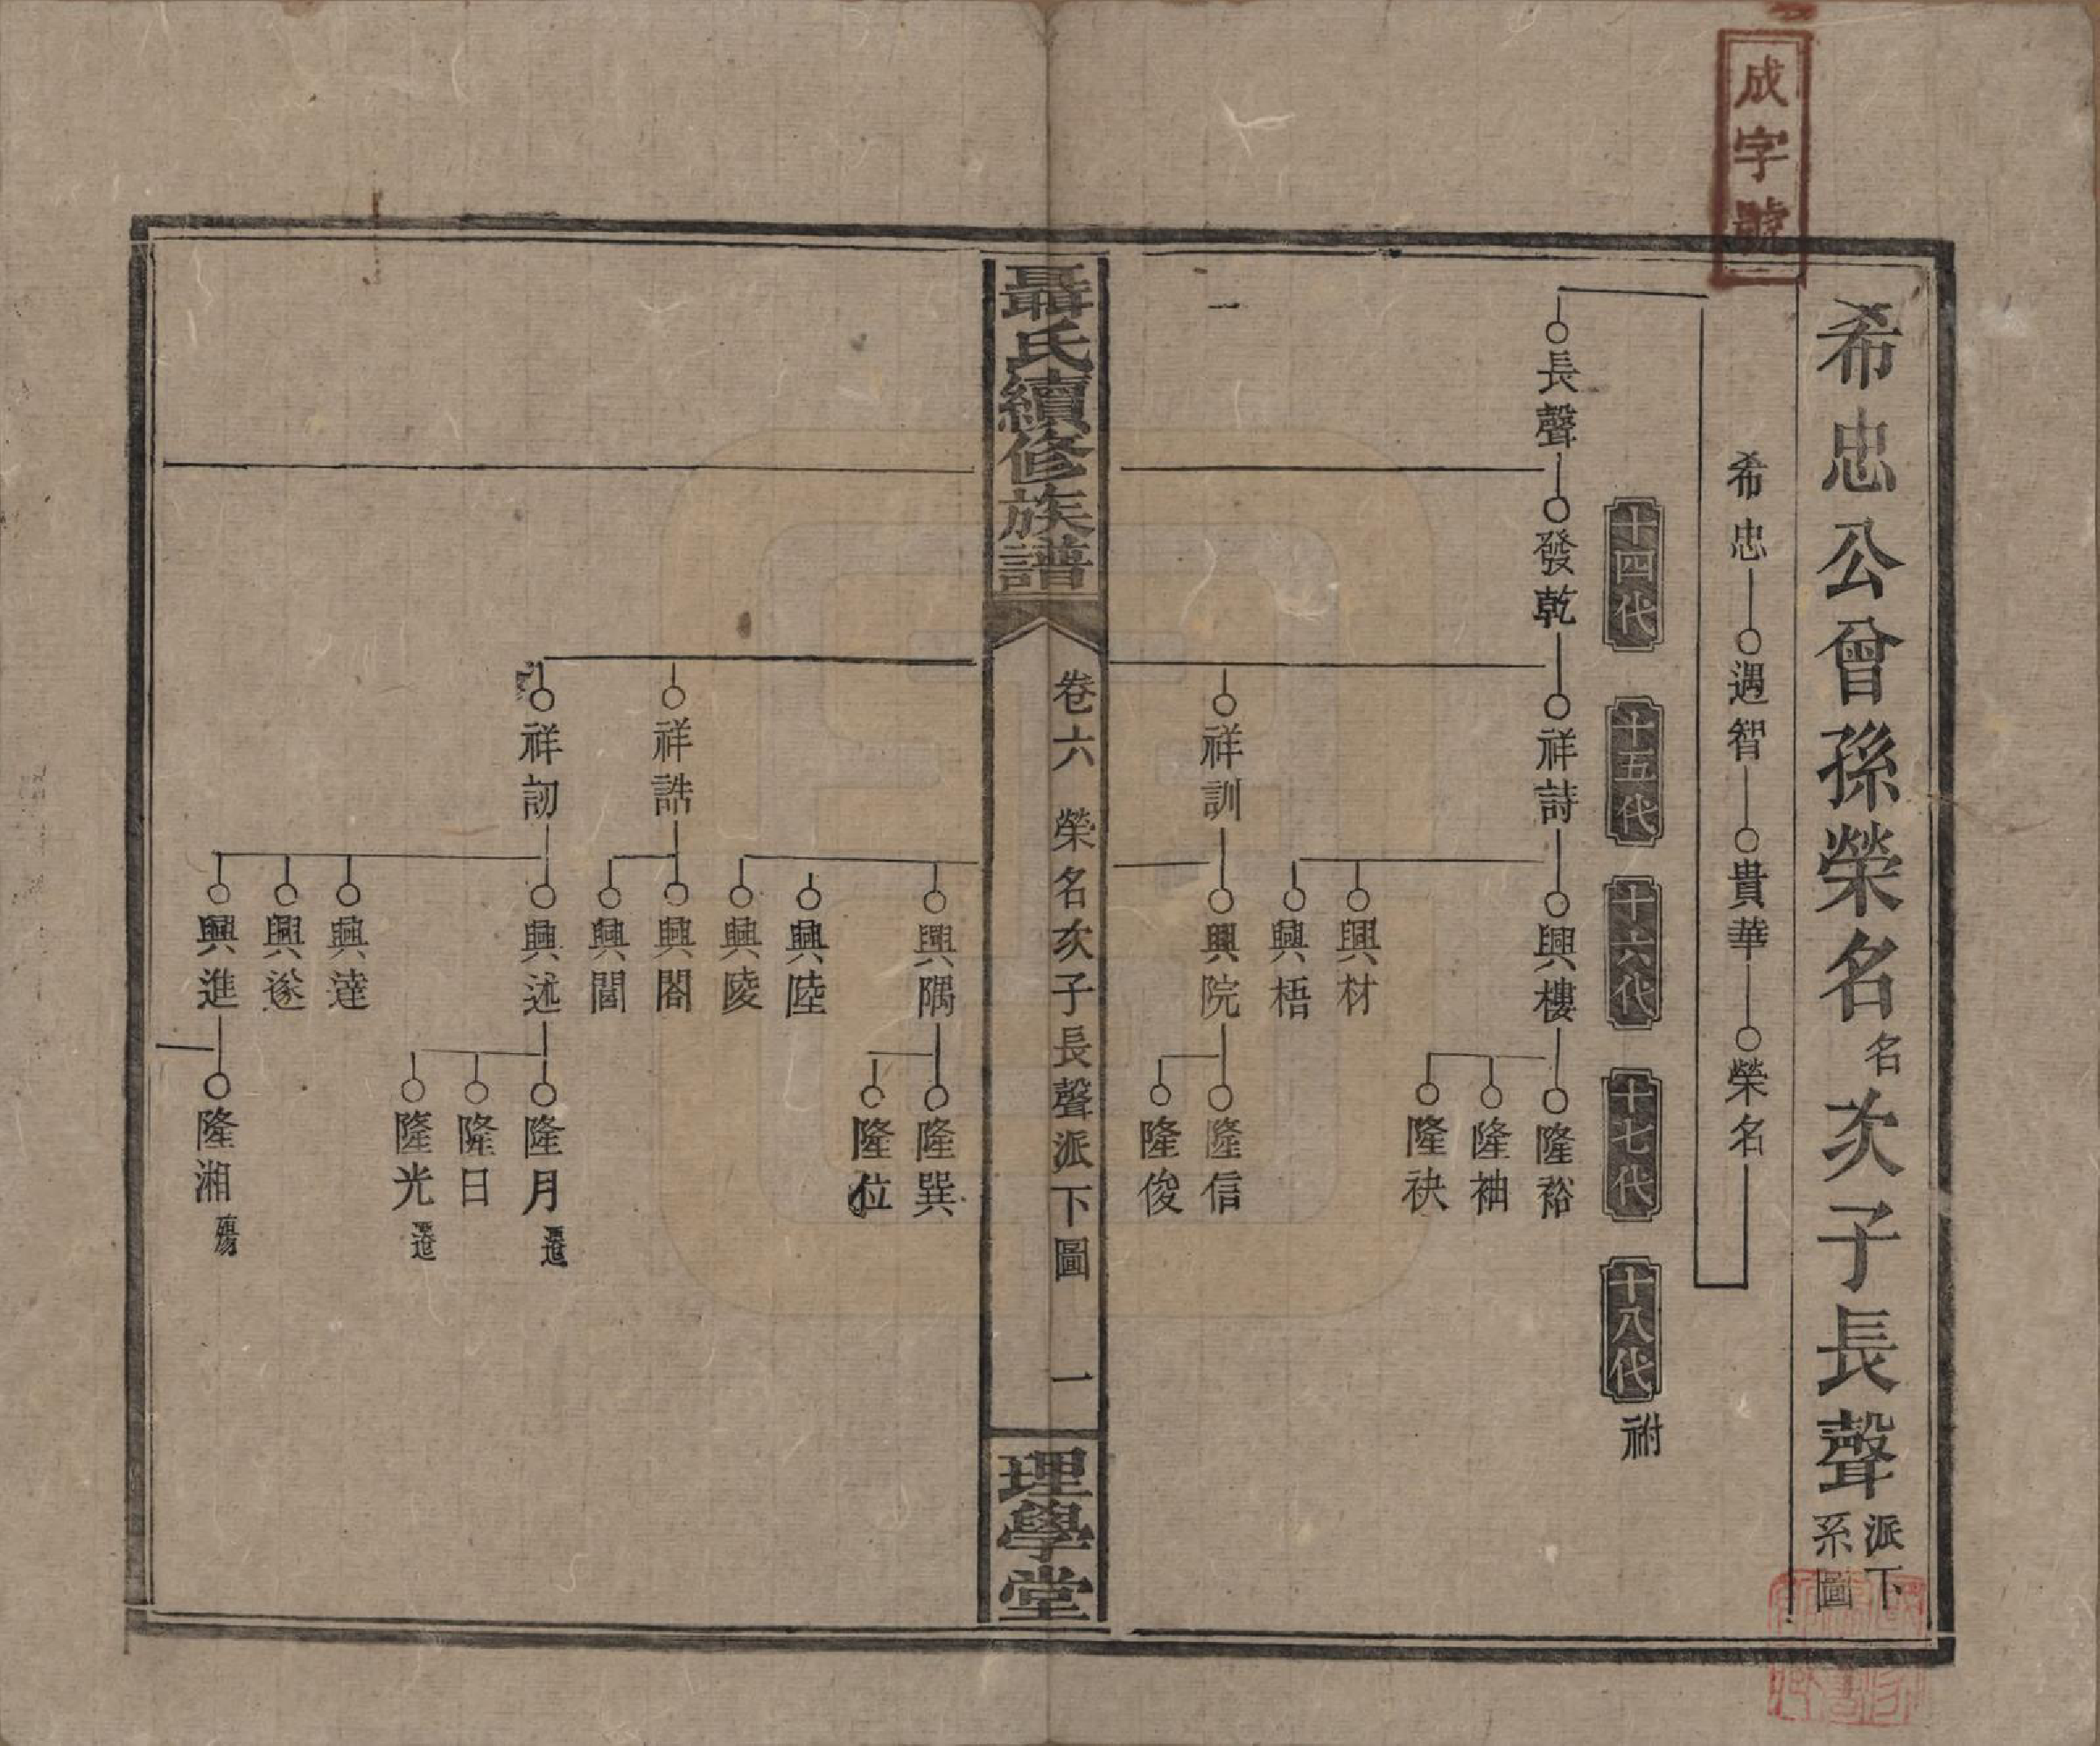 成字號
希忠公曾孫榮名名次子長聲派下系圖
希忠 遇智 貴華 榮名
十四代 十五代 十六代 十七代 十八代 祔
長聲 發乾 祥詩 興樓 隆裕
隆袖
隆袂
興材
興梧
一
祥訓 興院 隆信
隆俊
聶氏續修族譜
卷六 榮名次子長聲派下圖 一
理學堂
興隅 隆巽
隆位
興陸
興陵
祥誥 興閣
興閭
祥訒 興述 隆月
隆日
隆光
興達
興遂
興進 隆湘 殤